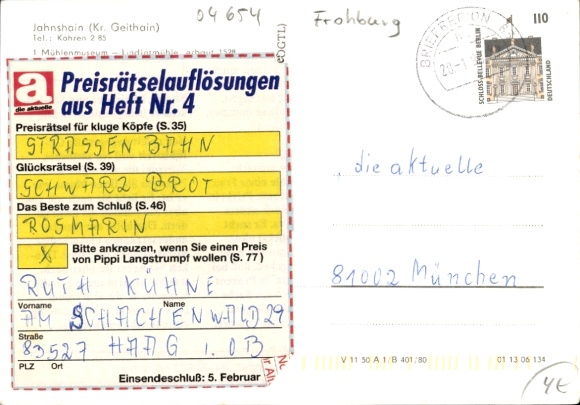 04654
Frohburg
Jahnshain (Kr. Geithain)
Tel.: Kohren 2 85
1 Mühlenmuseum – Lindigtmühle, erbaut 1528
(DGTL)
BRIEFREGION
110
SCHLOSS BELLEVUE BERLIN
DEUTSCHLAND
a
die aktuelle
Preisrätselauflösungen
aus Heft Nr. 4
Preisrätsel für kluge Köpfe (S. 35)
STRASSEN BAHN
Glücksrätsel (S. 39)
SCHWARZ BROT
Das Beste zum Schluß (S. 46)
ROSMARIN
X Bitte ankreuzen, wenn Sie einen Preis
von Pippi Langstrumpf wollen (S. 77)
RUTH KÜHNE
Vorname Name
AM SCHACHENWALD 29
Straße
83527 HAAG I. OB
PLZ Ort
Einsendeschluß: 5. Februar
die aktuelle
81002 München
V 11 50 A 1/B 401/80
01 13 06 134
4€